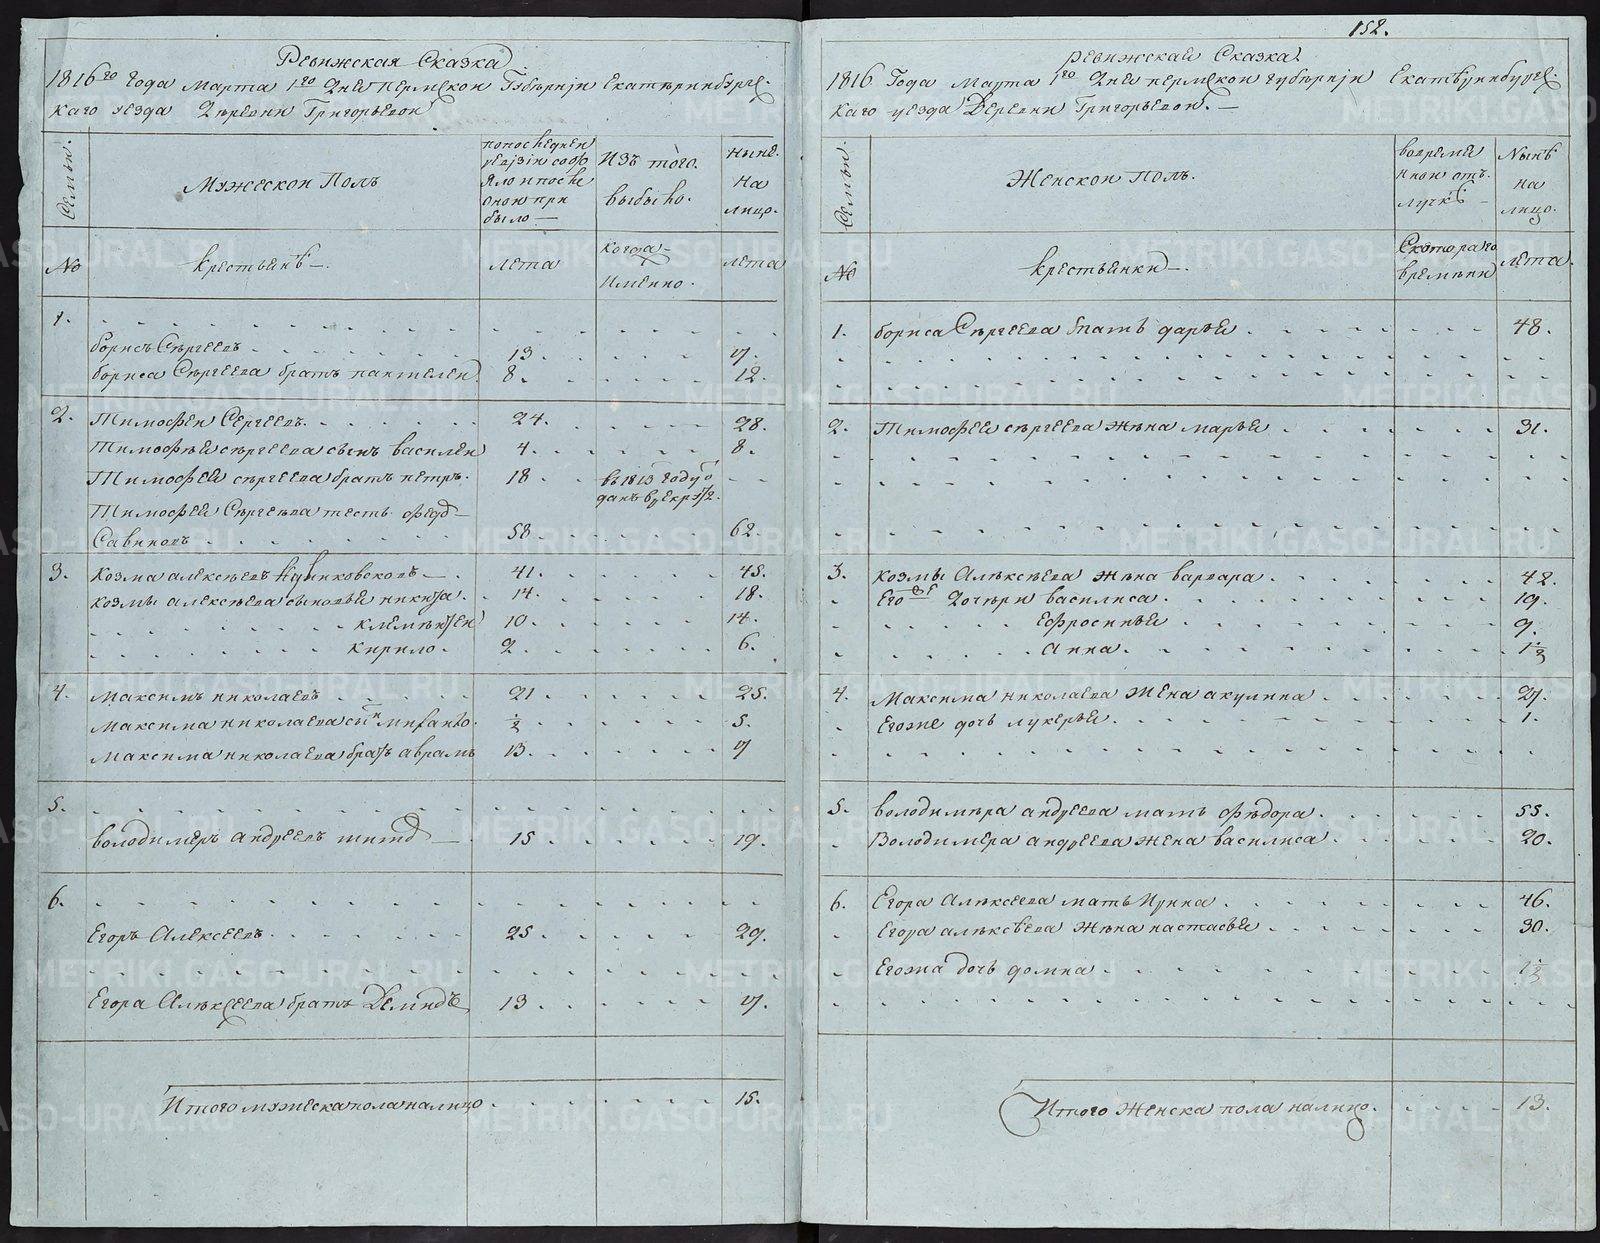 152.
Ревижская Сказка
1816го Года Марта 1го Дня Пермской Губърніи Екатъринбургс
каго уезда Дъревни Григорьевой
Семьи.
Мужескои Полъ
попоследней
ревизіи состо
яло и после
оной при
было —
Изъ того.
выбыло.
Ныне.
На
лицо.
№
крестьянъ —.
лета
когда
Именно.
лета
1.
борисъ Съргеевъ 13. 17.
бориса Съргеева братъ пантелей. 8. 12.
2. Тимофей Сергеевъ. 24. 28.
Тимофъей съргеева сынъ василеи 4. 8.
Тимофей съргеева братъ петръ. 18 въ 1813 году о
данъ в рекр
Тимофей Съргеъва тесть Федо
Савиновъ 58. 62.
3. Козма алексъевъ 41. 45.
козмы алексъева сыновья никита. 14. 18.
клемънтеи 10. 14.
кирило. 2. 6.
4. Максимъ николаевъ 21 25.
Максима николаева сын 1/2 5.
Максима николаева братъ аврамъ 13. 17
5.
володимеръ андреевъ 15. 19.
6.
Егоръ Алексеевъ. 25. 29.
Егора Алъксеева братъ Демидъ 13 17.
Итого мужеска пола налицо 15.
Ревижскай Сказка
1816 Года Марта 1го Дня пермской губърніи Екатъринбургс
каго уезда Деревни Григорьевой. —
Семьи.
Женскои полъ.
вовремя
ннои отъ
лучкъ —
Нынъ
на
лицо.
№
крестьянки —.
Скотораго
времъни
лета.
1. бориса Съргеева мать дарья 48.
2. Тимофея съргеева жъна марья 31.
3. козмы Алъксъева жъна варвара. 42.
Его же дочъри василиса. 19.
Ефросинья 9.
Анна. 1 1/2
4. Максима николаева жена акулина 27.
Егоже дочь лукерья. 1.
5. володимъра андреева мать фъдора. 55.
Володимера андреева жена василиса 20.
6. Егора Алъксеева мать Ирина 46.
Егора алъксъева жъна настасья 30.
Егожа дочь домна 1 1/2
Итого Женска пола налицо. 13.